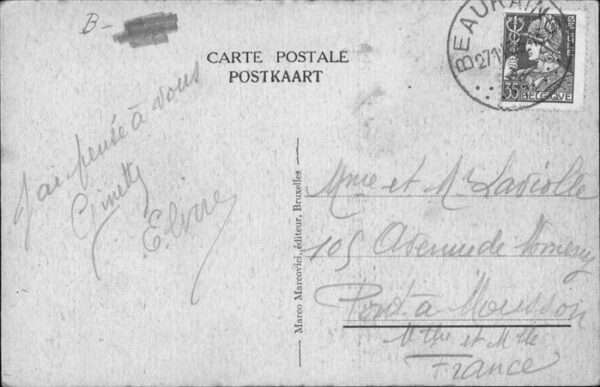 B-
CARTE POSTALE
POSTKAART
BEAURAING
35
BELGIQUE
J'ai pensée à vous
Ginette
Elvire
Marco Marcovici, éditeur, Bruxelles
Mme et Mr Laviolle
105 Avenue de Nomeny
Pont à Mousson
Mthe et Mlle
France